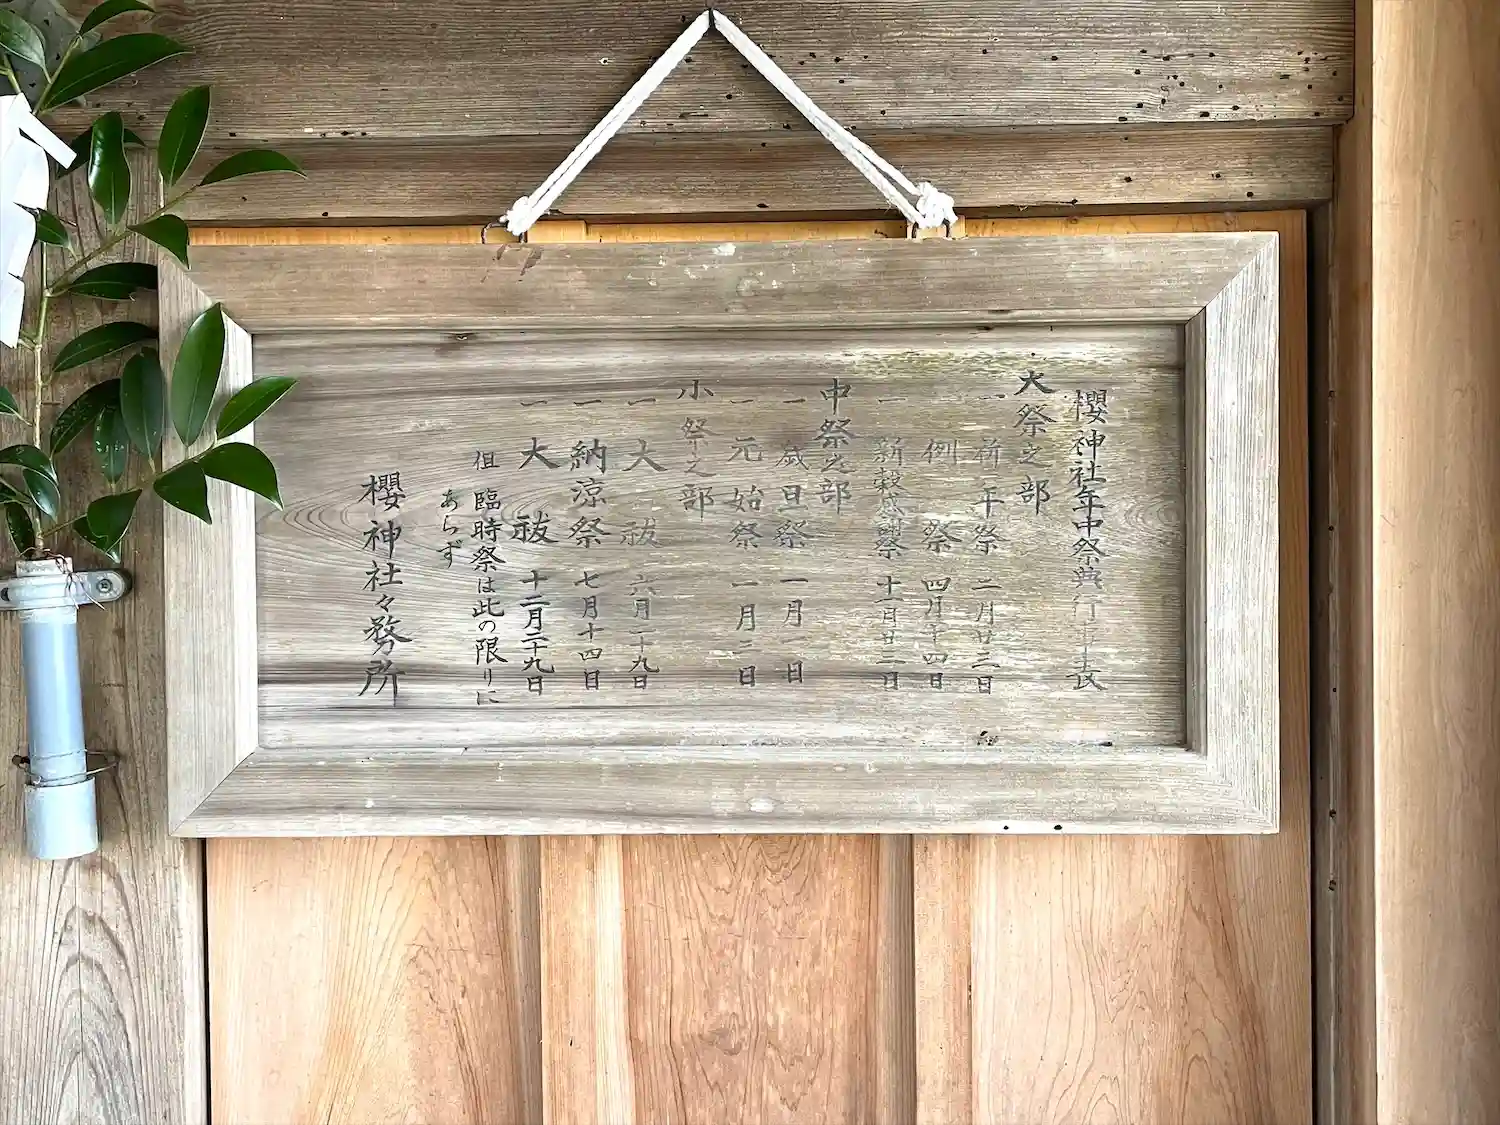 櫻神社年中祭典行事表
大祭之部
一 祈年祭 二月廿三日
一 例祭 四月十四日
一 新穀感謝祭 十一月廿三日
中祭之部
一 歳旦祭 一月一日
一 元始祭 一月三日
小祭之部
一 大祓 六月二十九日
一 納涼祭 七月十四日
一 大祓 十二月二十九日
但 臨時祭は此の限りに
あらず
櫻神社々務所